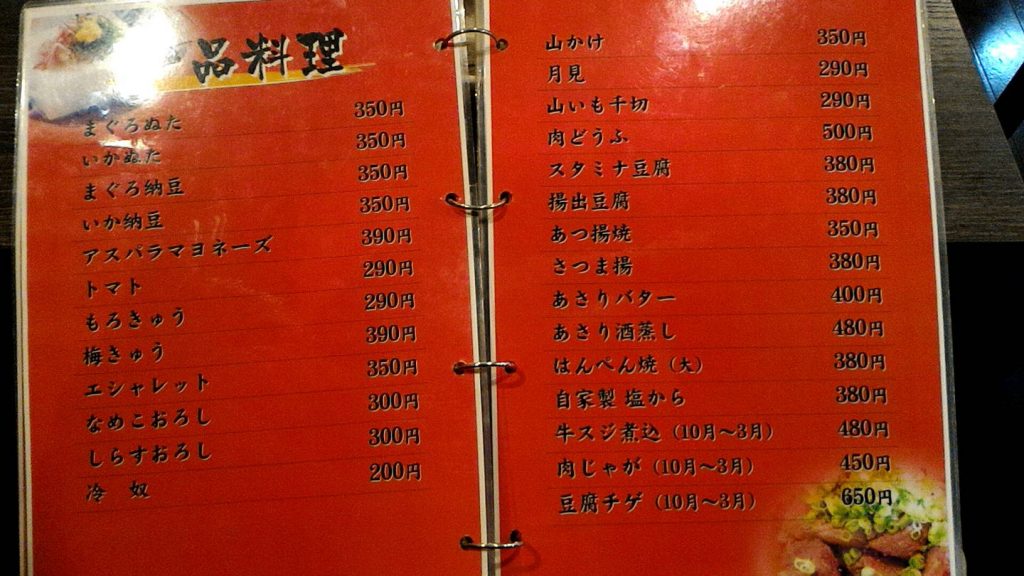 一品料理
まぐろぬた 350円
いかぬた 350円
まぐろ納豆 350円
いか納豆 350円
アスパラマヨネーズ 390円
トマト 290円
もろきゅう 290円
梅きゅう 390円
エシャレット 350円
なめこおろし 300円
しらすおろし 300円
冷 奴 200円
山かけ 350円
月見 290円
山いも千切 290円
肉どうふ 500円
スタミナ豆腐 380円
揚出豆腐 380円
あつ揚焼 350円
さつま揚 380円
あさりバター 400円
あさり酒蒸し 480円
はんぺん焼（大） 380円
自家製 塩から 380円
牛スジ煮込（10月～3月） 480円
肉じゃが（10月～3月） 450円
豆腐チゲ（10月～3月） 650円